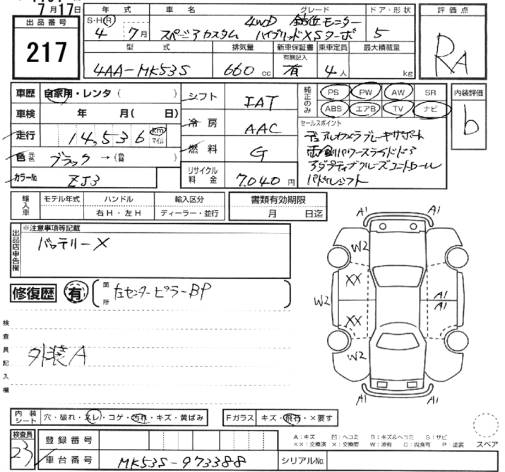 7月17日
出品番号 217
年式 車名 グレード ドア・形状
4WD 全方位モニター
S・H・R 4年 7月 スペーシアカスタム ハイブリッドXSターボ 5
型式 排気量 新車保証書 有無記入 乗車定員 最大積載量
4AA-MK53S 660cc 有 4人 kg
評価点
RA
車歴 自家用・レンタ( ) シフト IAT
車検 年 月( 日) 冷房 AAC
走行 14,536 km マイル 燃料 G
色 ブラック→ リサイクル料金 7,040円
カラーNo ZJ3
純正のみ PS PW AW SR
ABS エアB TV ナビ
セールスポイント
デュアルカメラブレーキサポート
両側パワースライドドア
アダプティブクルーズコントロール
パドルシフト
内装評価
b
輸入車 モデル年式 ハンドル 右H・左H 輸入区分 ディーラー・並行
書類有効期限 月 日迄
出品店申告欄 ※注意事項等記載
バッテリーX
修復歴 有 箇所 左センターピラーBP
検査員記入欄
外装A
A1 A1
W2
XX
W2 A1 A1
XX
W2
A1 A1
内装シート 穴・破れ・スレ・コゲ・汚れ・キズ・黄ばみ
Fガラス キズ・飛石・×要す
A:キズ 凹:ヘコミ B:キズ&ヘコミ S:サビ
XX:交換済 X:交換要 W:波有 C:腐食有 P:塗装
スペア
検査員 23
登録番号
車台番号 MK53S-973388 シリアルNo.